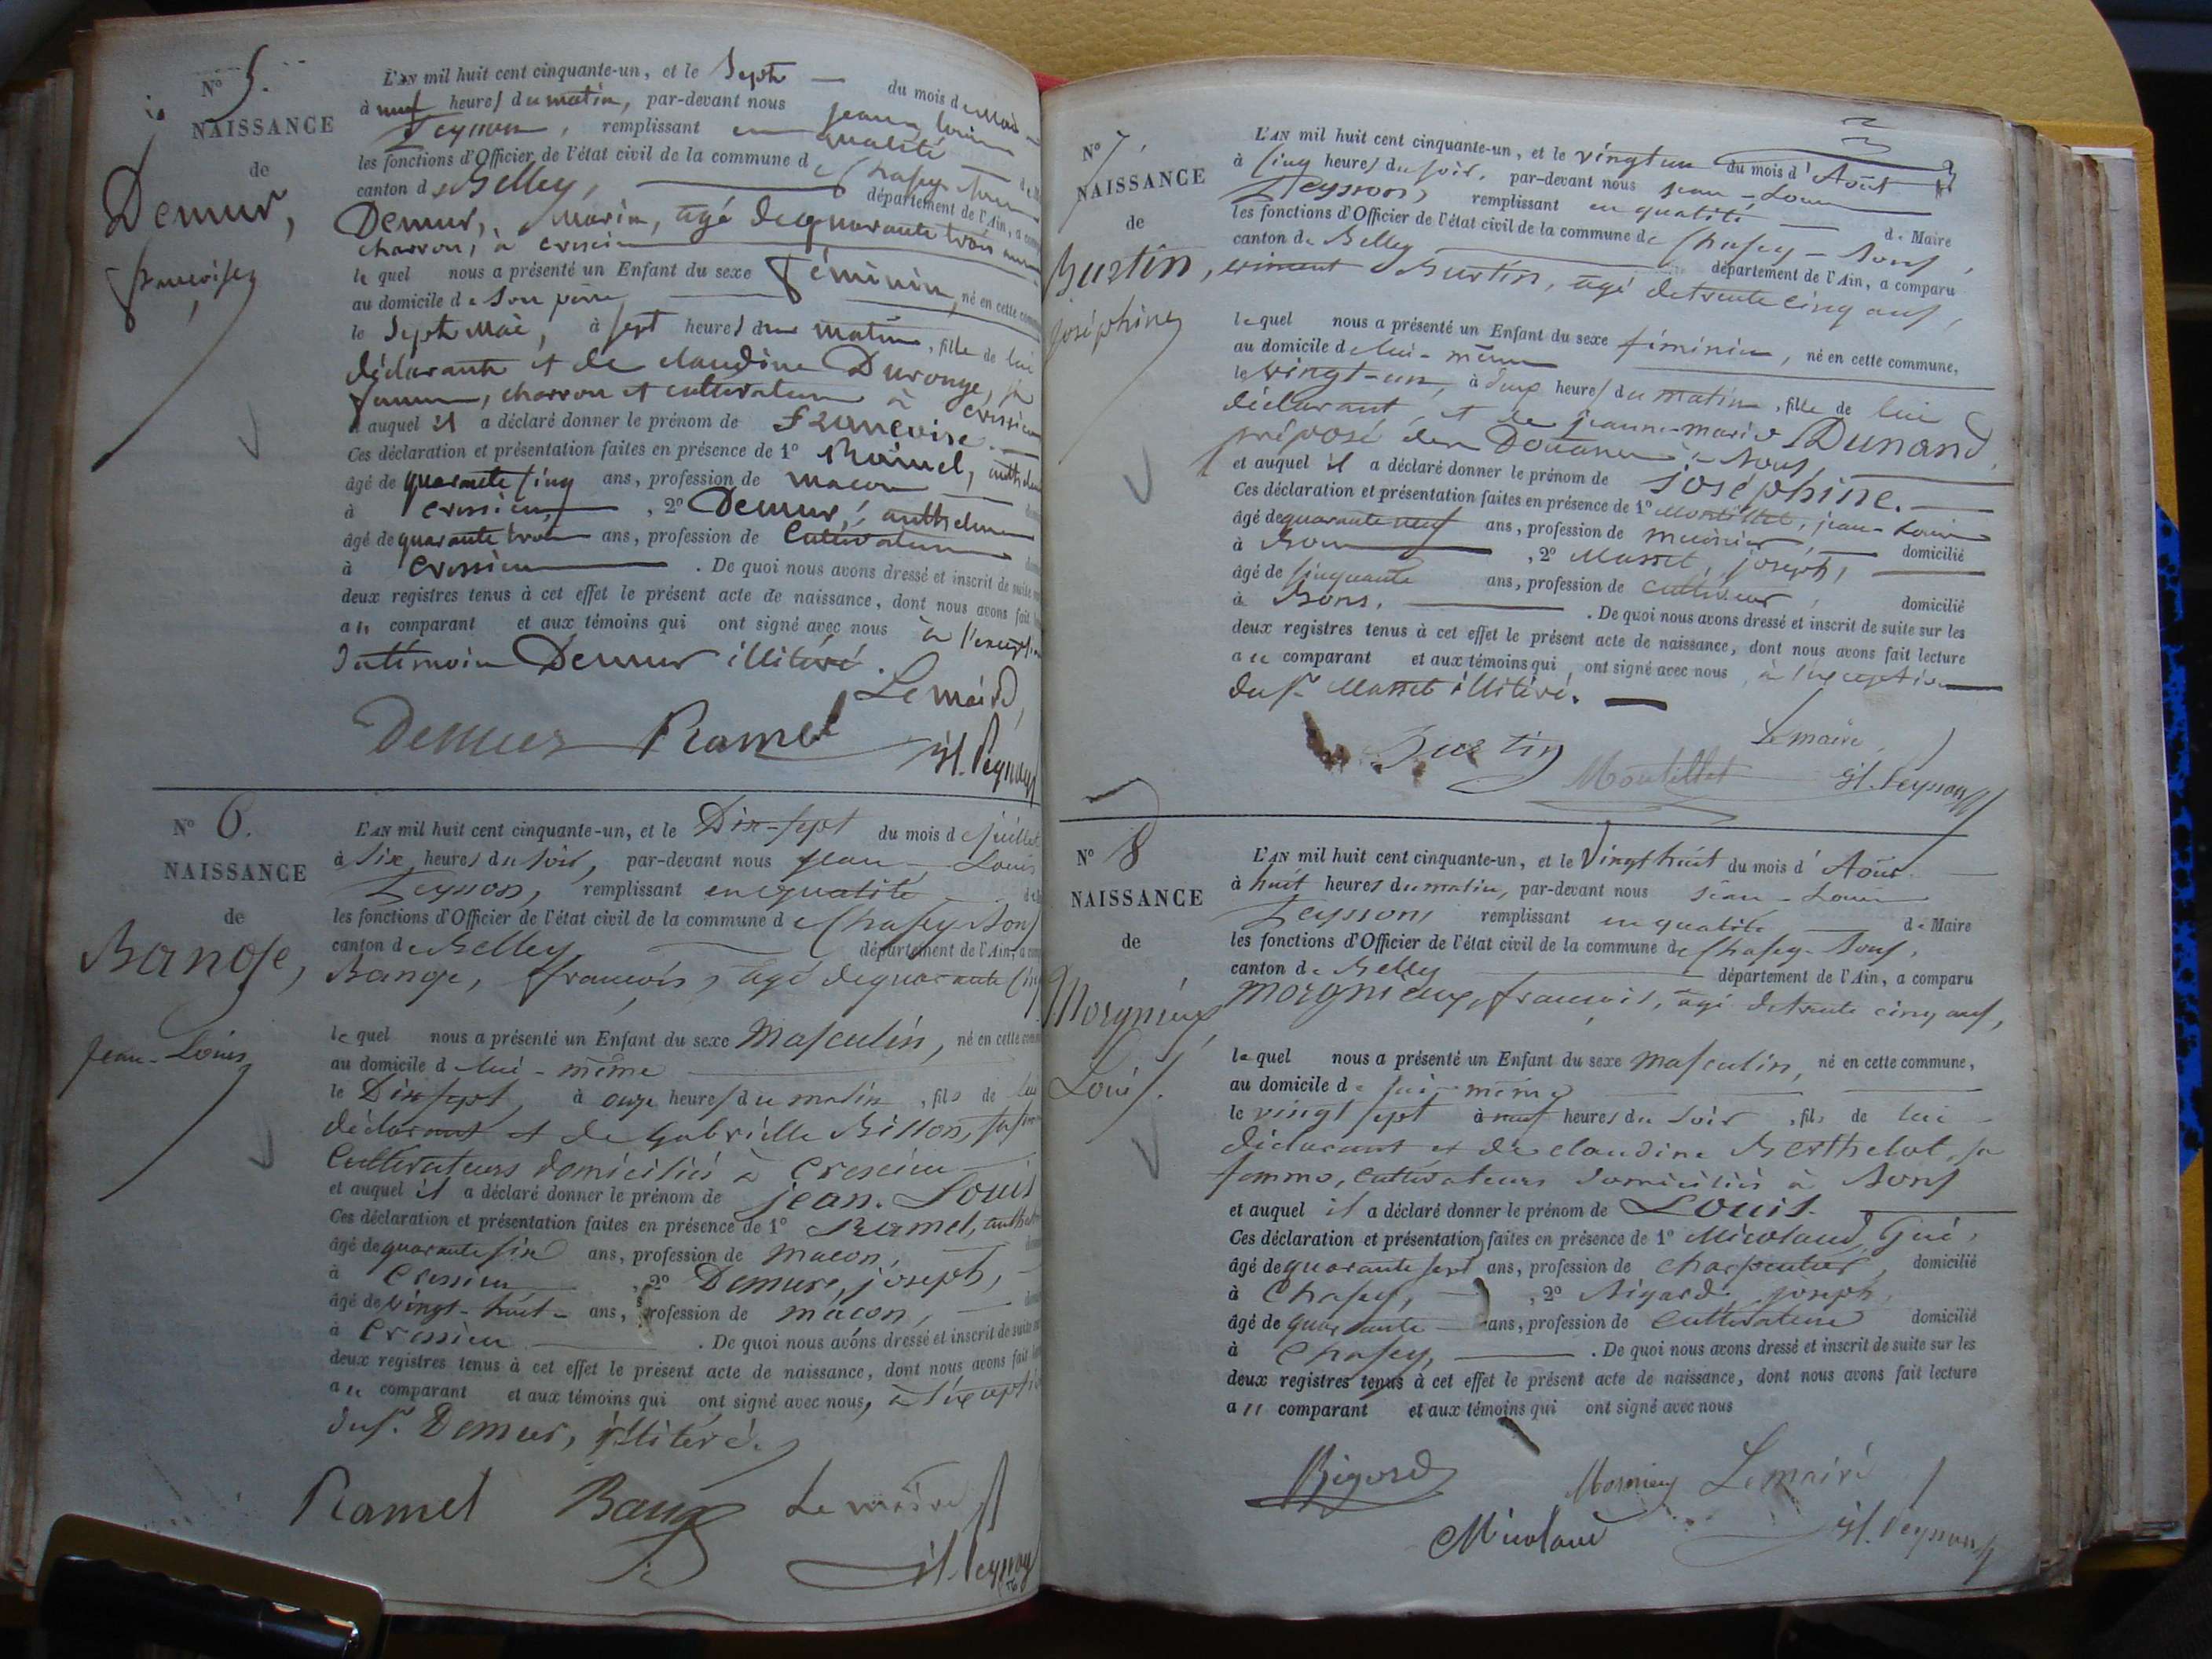 N° 5.
NAISSANCE
de
Demur,
françoise
L'AN mil huit cent cinquante-un, et le Sept du mois de Mai
à neuf heures du matin, par-devant nous jean Louis
Peysson, remplissant en qualité
les fonctions d'Officier de l'état civil de la commune de Chasey-Bons
canton de Belley, département de l'Ain, a
Demur, Marin, âgé de quarante trois ans
charron, à cressieu
le quel nous a présenté un Enfant du sexe féminin, né en cette
au domicile de son père
le Sept Mai, à sept heures du matin, fille de lui
déclarant et de claudine Duronge, sa
femme, charron et cultivateur à cressieu
auquel il a déclaré donner le prénom de françoise.
Ces déclaration et présentation faites en présence de 1° Ramel, anthelme
âgé de quarante cinq ans, profession de macon
à cressieu, 2° Demur, anthelme
âgé de quarante trois ans, profession de Cultivateur
à cressieu. De quoi nous avons dressé et inscrit de suite
deux registres tenus à cet effet le présent acte de naissance, dont nous avons fait
au comparant et aux témoins qui ont signé avec nous à l'exception
du témoin Demur illitéré.
Le maire,
Demur Ramel
jL. Peysson
N° 6.
NAISSANCE
de
Bange,
jean-Louis
L'AN mil huit cent cinquante-un, et le Dix-sept du mois de juillet
à six heures du soir, par-devant nous jean Louis
Peysson, remplissant en qualité
les fonctions d'Officier de l'état civil de la commune de Chasey-Bons
canton de Belley département de l'Ain, a
Bange, françois, âgé de quarante cinq
le quel nous a présenté un Enfant du sexe Masculin, né en cette
au domicile de lui-même
le Dix sept, à onze heures du matin, fils de lui
déclarant et de Gabrielle Billon, sa
Cultivateurs domiciliés à Cressieu
et auquel il a déclaré donner le prénom de jean-Louis
Ces déclaration et présentation faites en présence de 1° Ramel, anthelme
âgé de quarante six ans, profession de macon,
à Cressieu, 2° Demur, joseph,
âgé de vingt-huit ans, profession de macon,
à Cressieu. De quoi nous avons dressé et inscrit de suite
deux registres tenus à cet effet le présent acte de naissance, dont nous avons fait
au comparant et aux témoins qui ont signé avec nous, à l'exception
du sr. Demur, illitéré.
Ramel Bange Le maire
jL. Peysson
N° 7.
NAISSANCE
de
Burtin,
joséphine
L'AN mil huit cent cinquante-un, et le vingt un du mois d'Août
à cinq heures du soir, par-devant nous jean-Louis
Peysson, remplissant en qualité de Maire
les fonctions d'Officier de l'état civil de la commune de Chasey-Bons,
canton de Belley département de l'Ain, a comparu
Burtin, âgé de trente cinq ans,
le quel nous a présenté un Enfant du sexe féminin, né en cette commune,
au domicile de lui-même
le vingt-un, à deux heures du matin, fille de lui
déclarant, et de jeanne-marie Dunand,
préposé des Douanes à Bons,
et auquel il a déclaré donner le prénom de joséphine.
Ces déclaration et présentation faites en présence de 1° Montillet, jean-Louis
âgé de quarante neuf ans, profession de meunier, domicilié
à Bons, 2° Masset, joseph,
âgé de cinquante ans, profession de cultiveur, domicilié
à Bons. De quoi nous avons dressé et inscrit de suite sur les
deux registres tenus à cet effet le présent acte de naissance, dont nous avons fait lecture
au comparant et aux témoins qui ont signé avec nous, à l'exception
du sr. Masset illitéré.
Burtin Le maire,
Montillet jL. Peysson
N° 8
NAISSANCE
de
Morgnieux,
Louis.
L'AN mil huit cent cinquante-un, et le Vingt huit du mois d'Août
à huit heures du matin, par-devant nous jean-Louis
Peysson, remplissant en qualité de Maire
les fonctions d'Officier de l'état civil de la commune de Chasey-Bons,
canton de Belley département de l'Ain, a comparu
Morgnieux, françois, âgé de trente cinq ans,
le quel nous a présenté un Enfant du sexe masculin, né en cette commune,
au domicile de lui même
le vingt sept à neuf heures du soir, fils de lui
déclarant et de claudine Berthelot, sa
femme, cultivateurs domiciliés à Bons
et auquel il a déclaré donner le prénom de Louis.
Ces déclaration et présentation faites en présence de 1° Micoland, Gué,
âgé de quarante sept ans, profession de charpentier, domicilié
à Chasey, 2° Bigard, joseph,
âgé de quarante ans, profession de Cultivateur domicilié
à Chasey, . De quoi nous avons dressé et inscrit de suite sur les
deux registres tenus à cet effet le présent acte de naissance, dont nous avons fait lecture
au comparant et aux témoins qui ont signé avec nous
Bigard Morgnieux Le maire
Micoland jL. Peysson